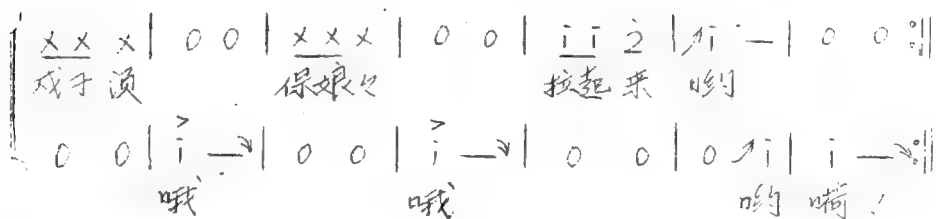 X X X | 0 0 | X X X | 0 0 | i i 2 | ↗i — | 0 0 :||
戏子 顶 保娘々 拉起 来 哟
0 0 | i — | 0 0 | i — | 0 0 | 0 ↗i | i — :||
哦 哦 哟 嗬!